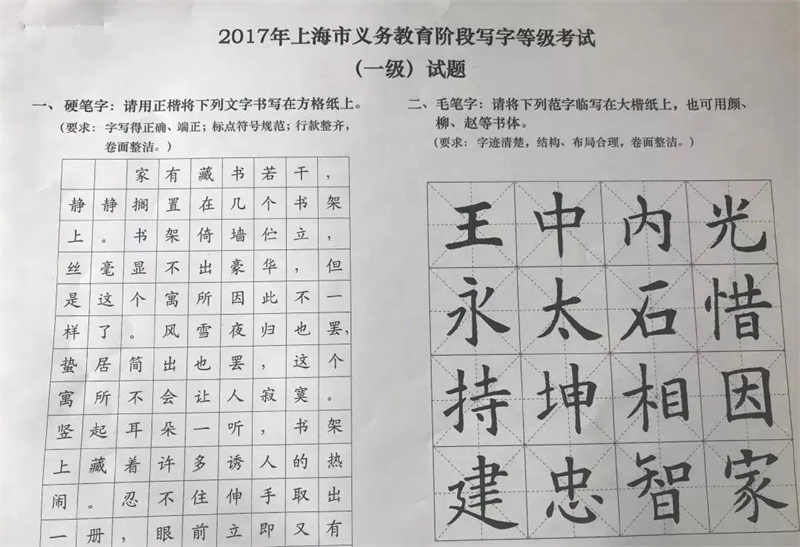 2017年上海市义务教育阶段写字等级考试
（一级）试题
一、硬笔字：请用正楷将下列文字书写在方格纸上。
（要求：字写得正确、端正；标点符号规范；行款整齐，
卷面整洁。）
家有藏书若干，
静静搁置在几个书架
上。书架倚墙伫立，
丝毫显不出豪华，但
是这个寓所因此不一
样了。风雪夜归也罢，
蛰居简出也罢，这个
寓所不会让人寂寞。
竖起耳朵一听，书架
上藏着许多诱人的热
闹。忍不住伸手取出
一册，眼前立即又有
二、毛笔字：请将下列范字临写在大楷纸上，也可用颜、
柳、赵等书体。
（要求：字迹清楚，结构、布局合理，卷面整洁。）
王中内光
永太石惜
持坤相因
建忠智家